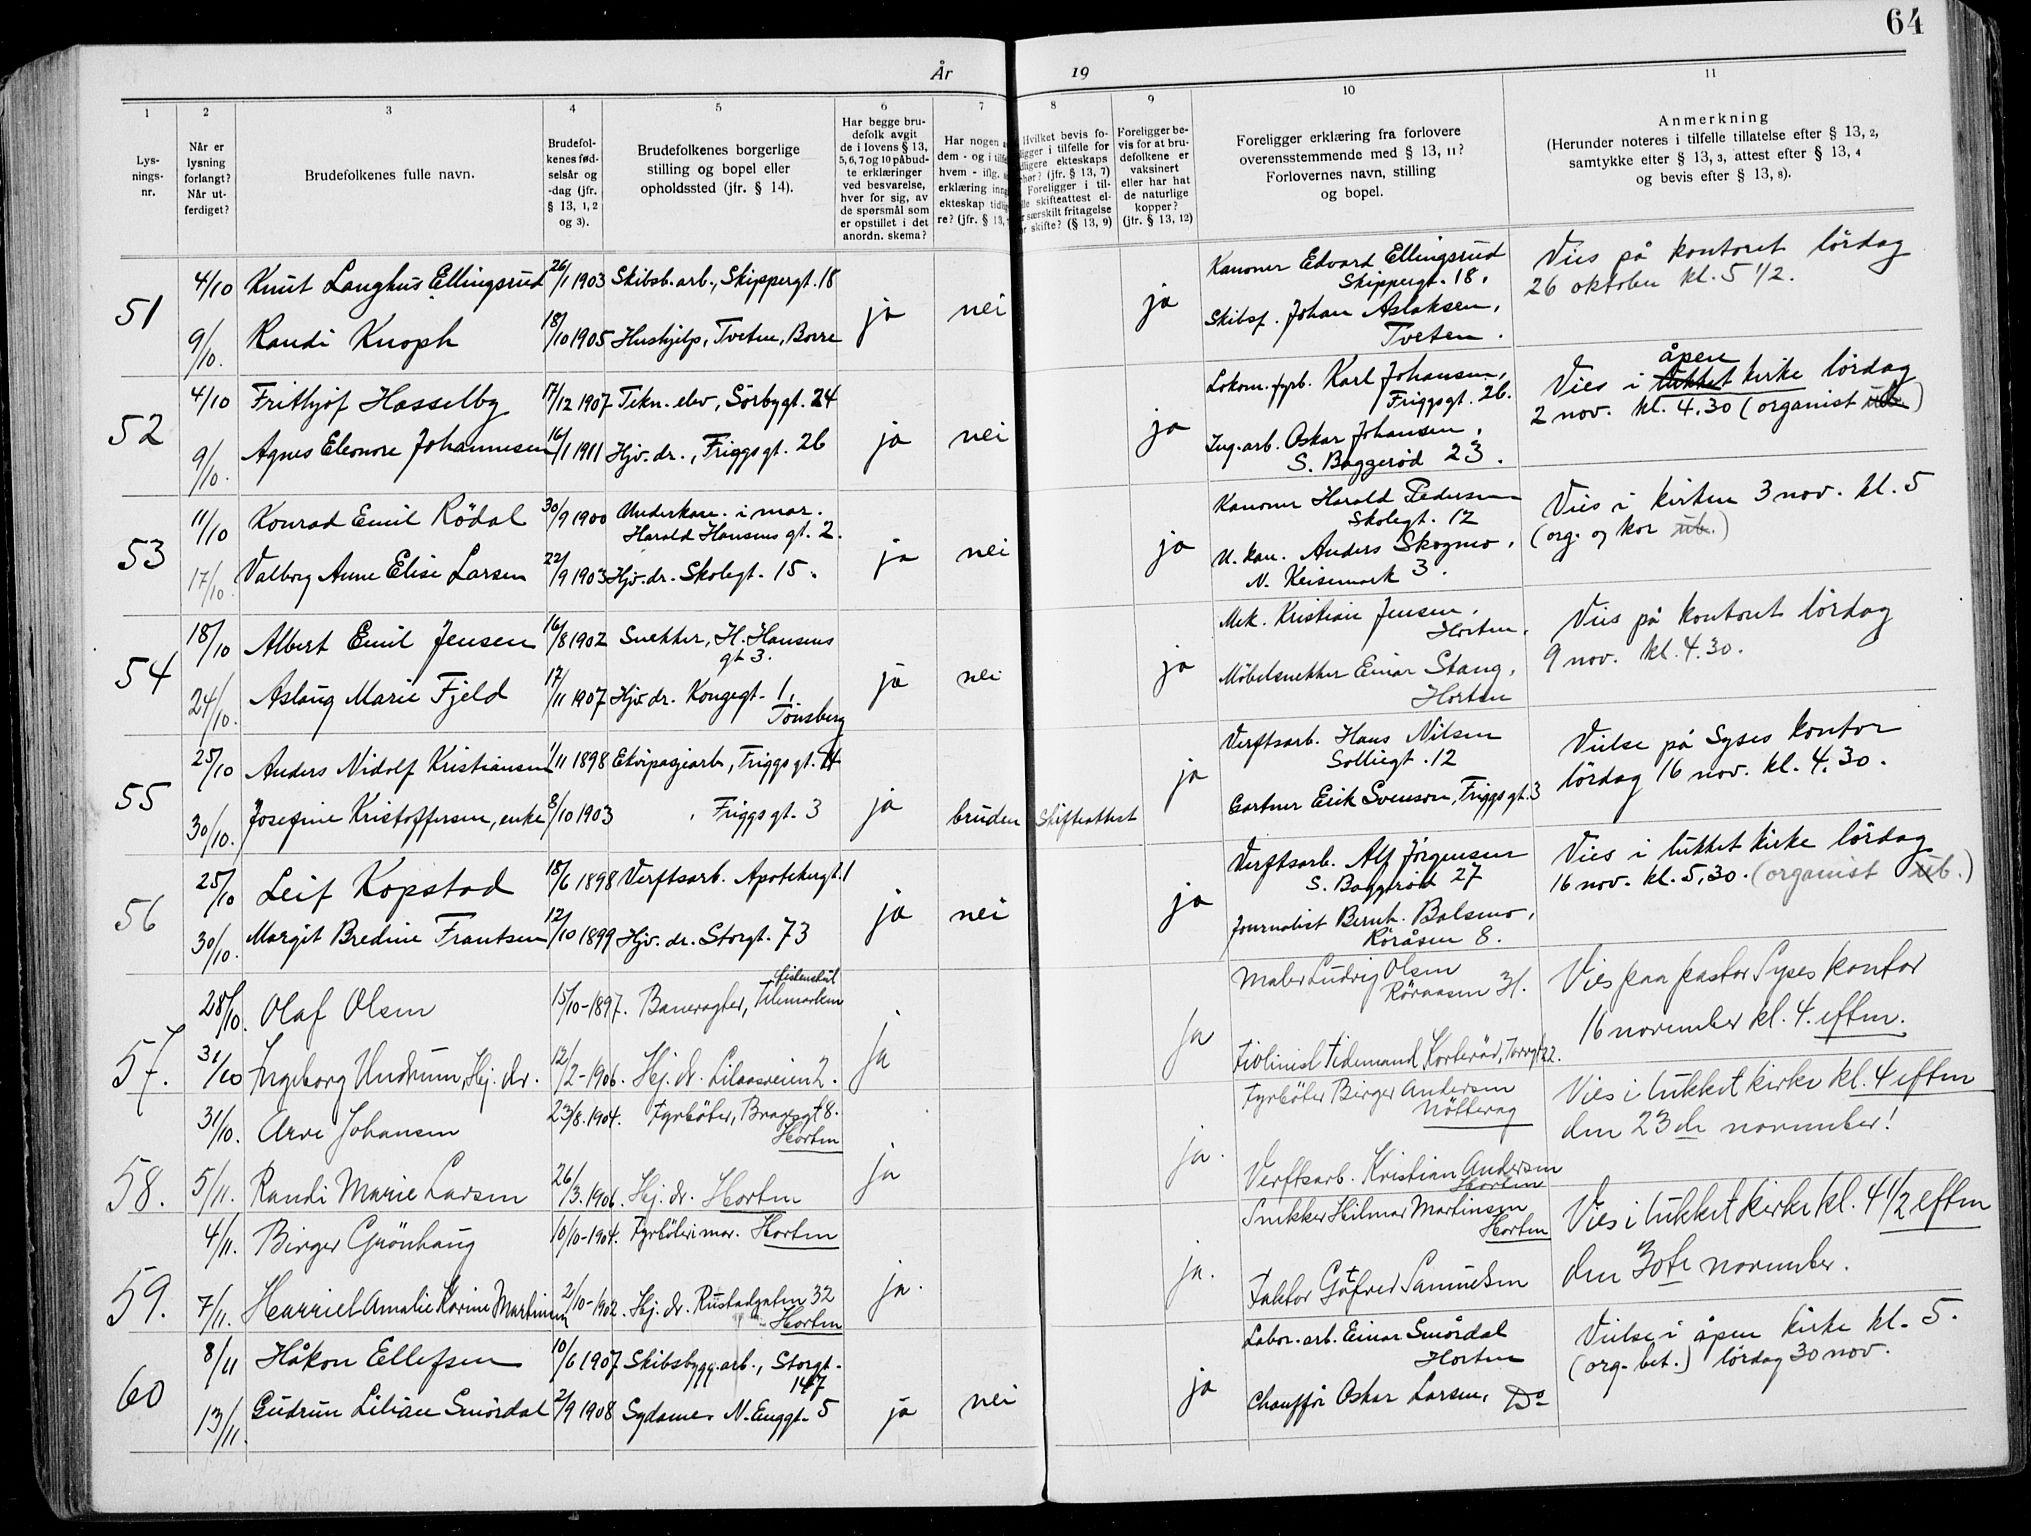 64
År 19
1 2 3 4 5 6 7 8 9 10 11
Lysningsnr.
Når er lysning forlangt? Når utferdiget?
Brudefolkenes fulle navn.
Brudefolkenes fødselsår og -dag (jfr. § 13, 1, 2 og 3).
Brudefolkenes borgerlige stilling og bopel eller opholdssted (jfr. § 14).
Har begge brudefolk avgit de i lovens § 13, 5, 6, 7 og 10 påbudte erklæringer ved besvarelse, hver for sig, av de spørsmål som er opstillet i det anordn. skema?
Har nogen
dem - og i
hvem - iflg.
erklæring
ekteskap
re? (jfr. § 13,
Hvilket bevis fo-
ligger i tilfelle for
ligere ekteskaps
hør? (jfr. § 13, 7)
Foreligger i til-
le skifteattest el-
r særskilt fritagelse
r skifte? (§ 13, 9)
Foreligger bevis for at brudefolkene er vaksinert eller har hat de naturlige kopper? (jfr. § 13, 12)
Foreligger erklæring fra forlovere overensstemmende med § 13, 11? Forlovernes navn, stilling og bopel.
Anmerkning
(Herunder noteres i tilfelle tillatelse efter § 13, 2, samtykke efter § 13, 3, attest efter § 13, 4 og bevis efter § 13, 8).
51
4/10 Knut Langhus Ellingsrud 26/1 1903 Skibsb. arb., Skippergt. 18
9/10. Randi Knoph 18/10 1905 Hushjelp, Tveten, Borre
ja nei ja
Kanoner Edvard Ellingsrud
Skippergt. 18.
Skibsf. Johan Aslaksen,
Tveten.
Vies på kontoret lördag
26 oktober kl. 5 1/2.
52
4/10 Frithjof Hasselby 17/12 1907 Tekn. elev, Sörbygt. 24
9/10. Agnes Eleonore Johannesen 16/1 1911 Hjv. dr., Friggsgt. 26
ja nei ja
Lokom. fyrb. Karl Johansen,
Friggsgt. 26.
Ing. arb. Oskar Johansen,
S. Baggerød 23.
Vies i lukket åpen kirke lördag
2 nov. kl. 4.30 (organist ub.)
53
11/10 Konrad Emil Rödal 30/9 1900 Underkan. i mar.
Harald Hansens gt. 2.
17/10. Valborg Anne Elise Larsen 22/9 1903 Hjv. dr. Skolegt. 15.
ja nei ja
Kanoner Harald Pedersen
Skolegt. 12
U. kan. Anders Skogmo,
N. Keisemark 3.
Vies i kirken 3 nov. kl. 5
(org. og kor ub.)
54
18/10 Albert Emil Jensen 16/8 1902 Snekker, H. Hansens
gt 3.
24/10. Aslaug Marie Fjeld 17/11 1907 Hjv. dr. Kongegt. 1,
Tönsberg
ja nei ja
Mek. Kristian Jensen,
Horten.
Möbelsnekker Einar Stang,
Horten
Vies på kontoret lördag
9 nov. kl. 4.30.
55
25/10 Anders Nidolf Kristiansen 1/11 1898 Ekvipasjearb., Friggsgt.
30/10. Josefine Kristoffersen, enke 8/10 1903 Friggsgt. 3
ja bruden Skifteattest ja
Verftsarb. Hans Nilsen
Solliegt. 12
Gartner Erik Svenson, Friggsgt. 3
Vielse på Syses kontor
lördag 16 nov. kl. 4.30.
56
25/10 Leif Kopstad 18/6 1898 Verftsarb. Apotekergt. 1
30/10. Margit Bredine Frantsen 12/10 1899 Hjv. dr. Storgt. 73
ja nei ja
Verftsarb. Alf Jörgensen
S. Baggeröd 27
Journalist Bernh. Balsmo,
Röråsen 8.
Vies i lukket kirke lördag
16 nov. kl. 5,30. (organist ub.)
57.
28/10. Olaf Olsen 15/10-1897. Banevagter, Telemarken
31/10 Ingeborg Undrum, Hj. dr. 12/2-1906. Hj. dr. Lilaasveien 2.
ja ja
Maler Ludvig Olsen
Röraasen 31.
Fiolinist Tidemand Korterød, Torvgt 22.
Vies paa pastor Syses kontor
16 november kl. 4. eftm.
58.
31/10. Arve Johansen 23/8. 1904. Fyrböter, Bragesgt 8.
Horten
5/11. Randi Marie Larsen 26/3. 1906. Hj. dr. Horten
ja ja.
Fyrböter Birger Andersen
Nötterøy
Verftsarb. Kristian Andersen
Horten
Vies i lukket kirke kl. 4 eftm
den 23de november!
59.
4/11. Birger Grönhaug 10/10-1904. Fyrböter i mar. Horten
7/11. Harriet Amalie Karine Martinsen 2/10-1902. Hj. dr. Rustadgaten 32
Horten
ja. ja.
Snekker Hilmar Martinsen
Horten
Faktor Gotfred Samuelsen
Vies i lukket kirke kl. 4 1/2 eftm
den 30te november.
60
8/11 Håkon Ellefsen 10/6 1907 Skibsbygg. arb., Storgt.
147
13/11. Gudrun Lilian Smördal 2/9 1908 Sydame. N. Enggt. 5
ja nei ja
Labor. arb. Einar Smördal
Horten
Chauffør Oskar Larsen, Do
Vielse i åpen kirke kl. 5.
(org. bet.) lördag 30 nov.